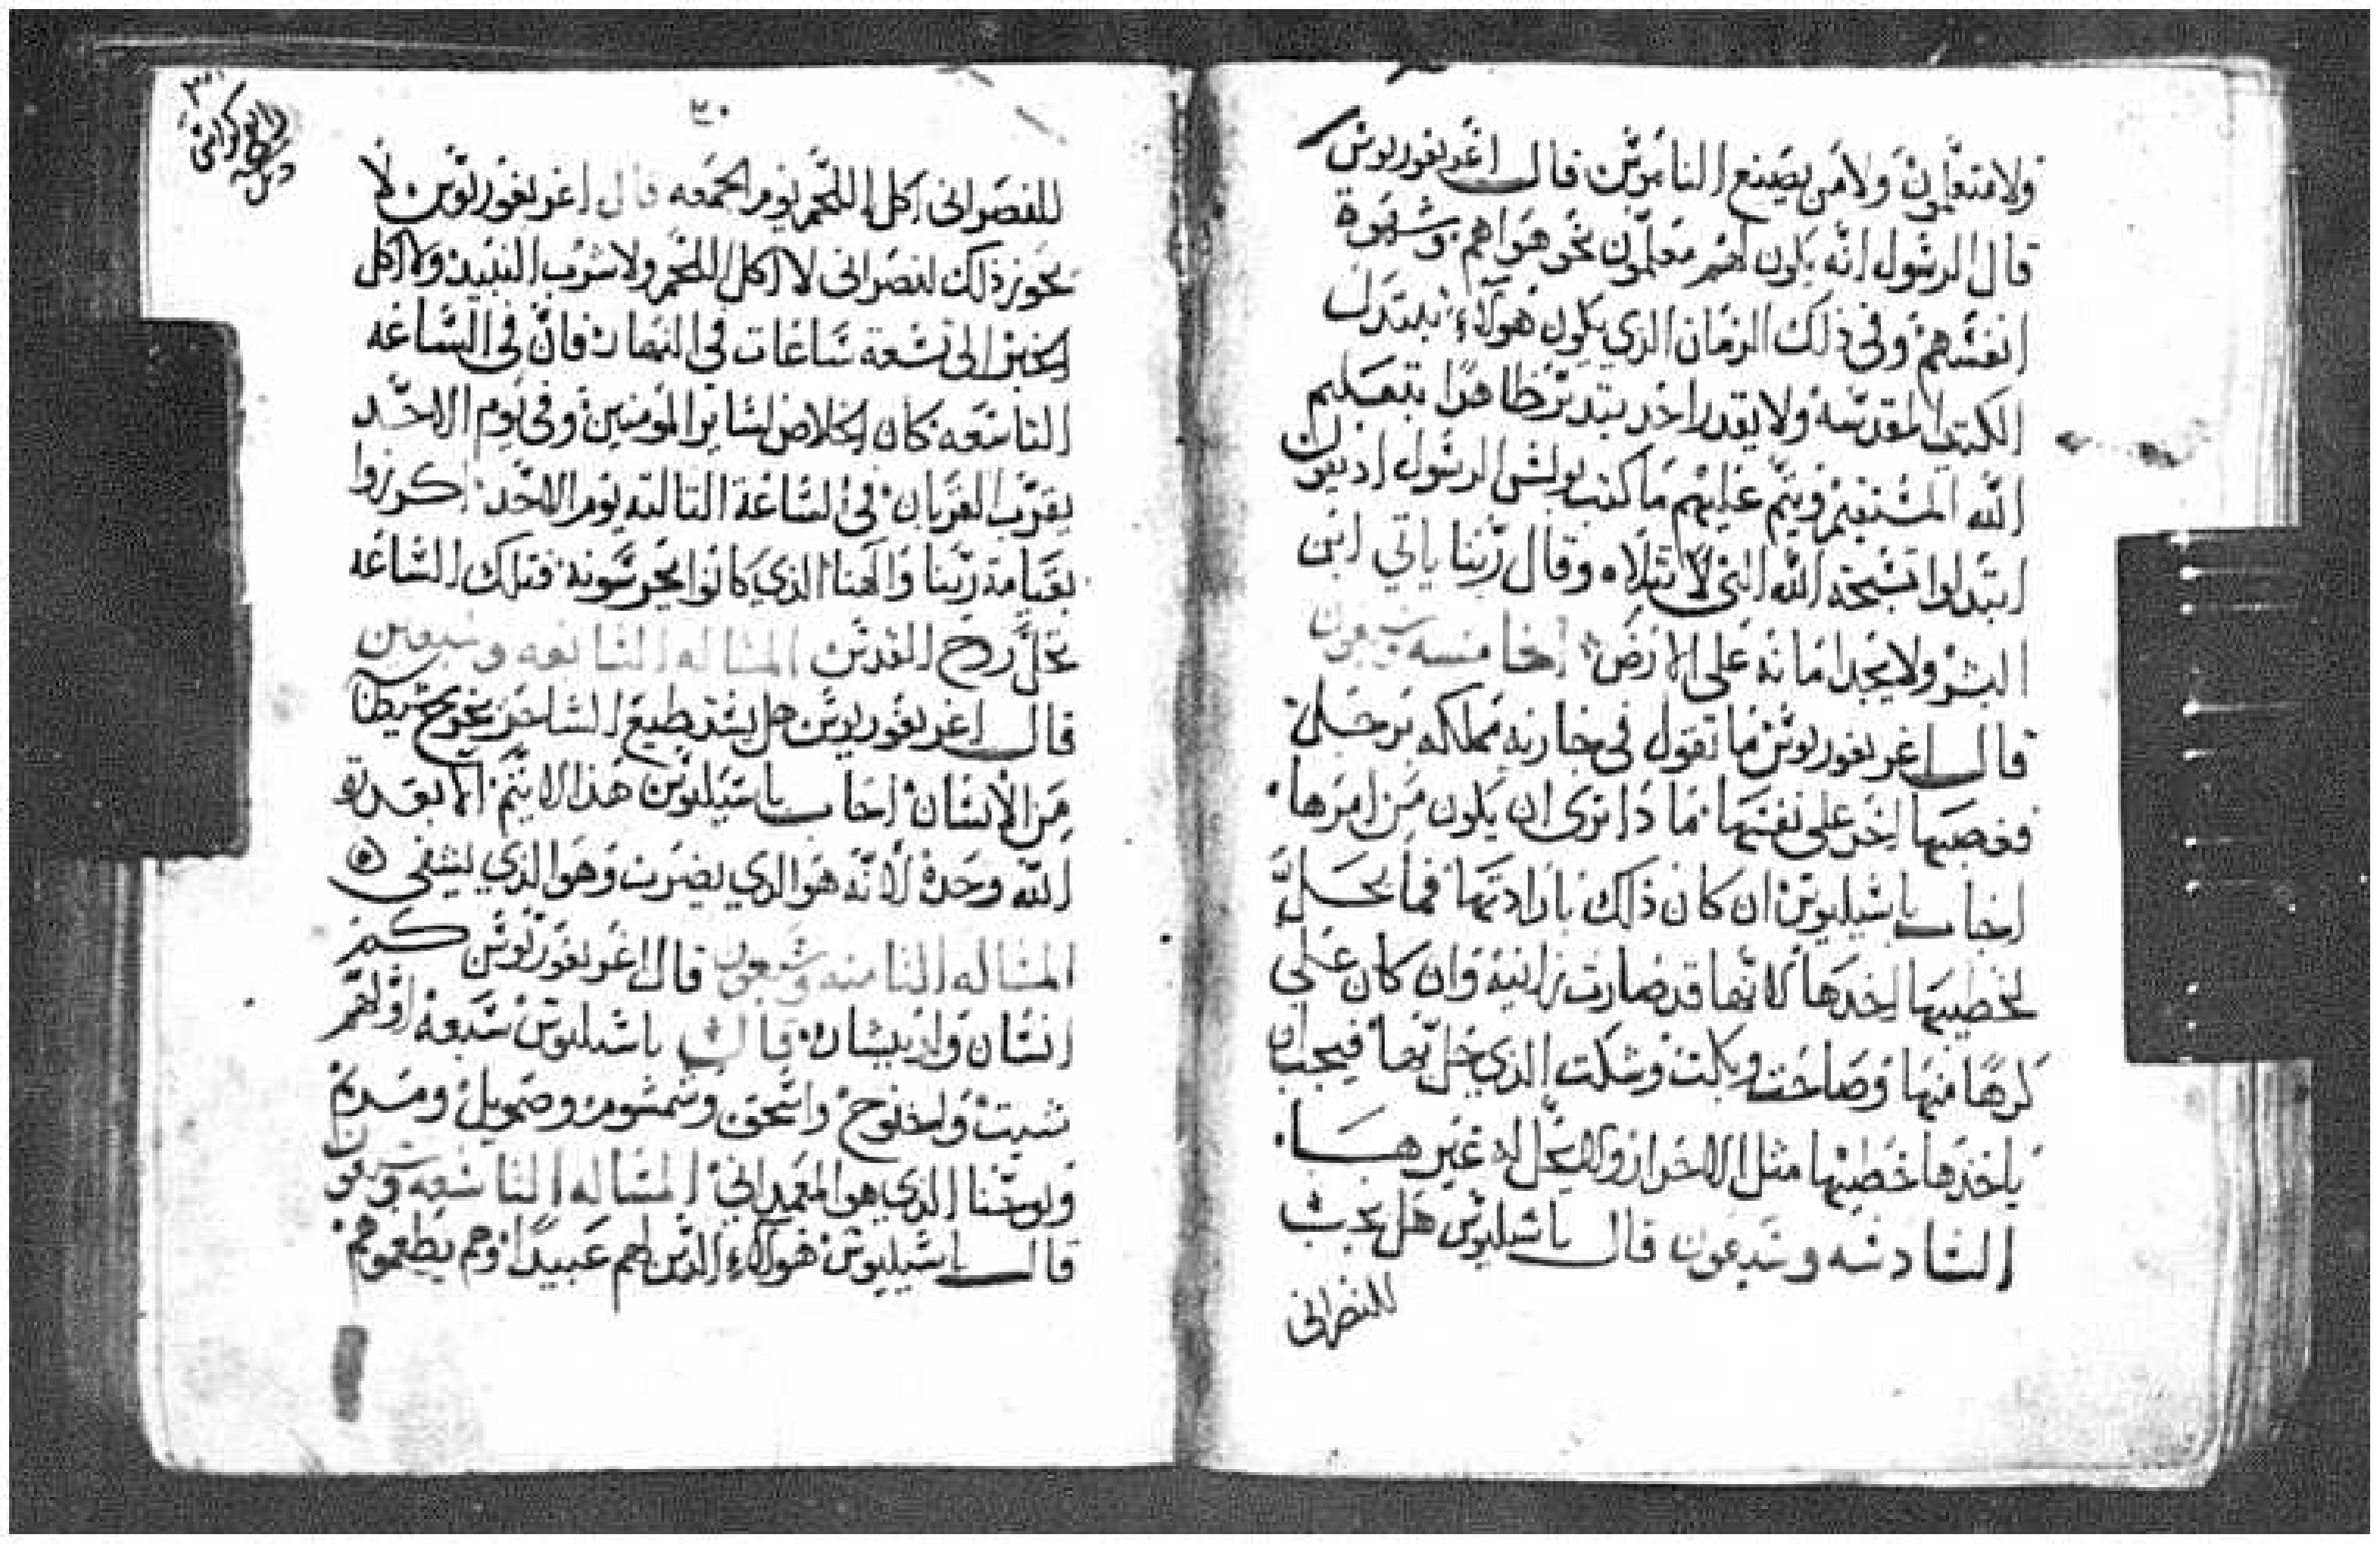 ولا متعلمين ولا من يصنع الناموس قال اغريغوريوس
قال الرسول انه يكون لهم معلمون نحو هواهم وشهوة
انفسهم وفي ذلك الزمان الذي يكون هولاء تبتدل
الكتب المقدسه ولا يقدر احد يبتدي ظاهرا بتعليم
الله المستقيم ويتم عليهم ما كتب بولس الرسول اذ يقول
ابتدلوا تسبحة الله التي لا تبلاء وقال ربنا ياتي ابن
البشر ولا يجد امانه على الارض الخامسه وسبعون
قال اغريغوريوس ما تقول في جاريه مملكه برجل
فغصبها اخر على نفسها ما ذا ترى ان يكون من امرها
اجاب باسيليوس ان كان ذلك بارادتها فما يحل
لخطيبها اخدها لانها قد صارت زانية وان كان على
كرها منها وصاحت وبكت وشكت الذي حل بها فيجب ان
ياخذها خطيبها مثل الاحرار ولا يحل له غيرها
السادسه وسبعون قال باسيليوس هل يجب
للنصراني
٣٠
للنصراني اكل اللحم يوم الجمعه قال اغريغوريوس لا
يجوز ذلك لنصراني لا اكل اللحم ولا شرب النبيذ ولا اكل
الخبز الى تسعة ساعات في النهار فان في الساعه
التاسعه كان الخلاص لساير المومنين وفي يوم الاحد
يقرب القربان في الساعة التالته يوم الاحد اكرزوا
بقيامة ربنا والهنا الذي كانوا يحرسونه فتلك الساعه
تحل روح القدس المساله السابعه وسبعين
قال اغريغوريوس هل يستطيع الساحر يخرج شيطانا
من الانسان اجاب باسيليوس هذا لا يتم الا بقدرة
الله وحده لانه هو الذي يضرب وهو الذي يشفي
المساله الثامنه وسبعون قال اغريغوريوس كم
انسان ولد بيشاره قال باسيليوس سبعه اولهم
شيت واخنوخ واسحق وشمشوم وصمويل ومريم
ويوحنا الذي هو المعمداني المساله التاسعه وسبعون
قال باسيليوس هولاء الذين لهم عبيدا وهم يطعموهم